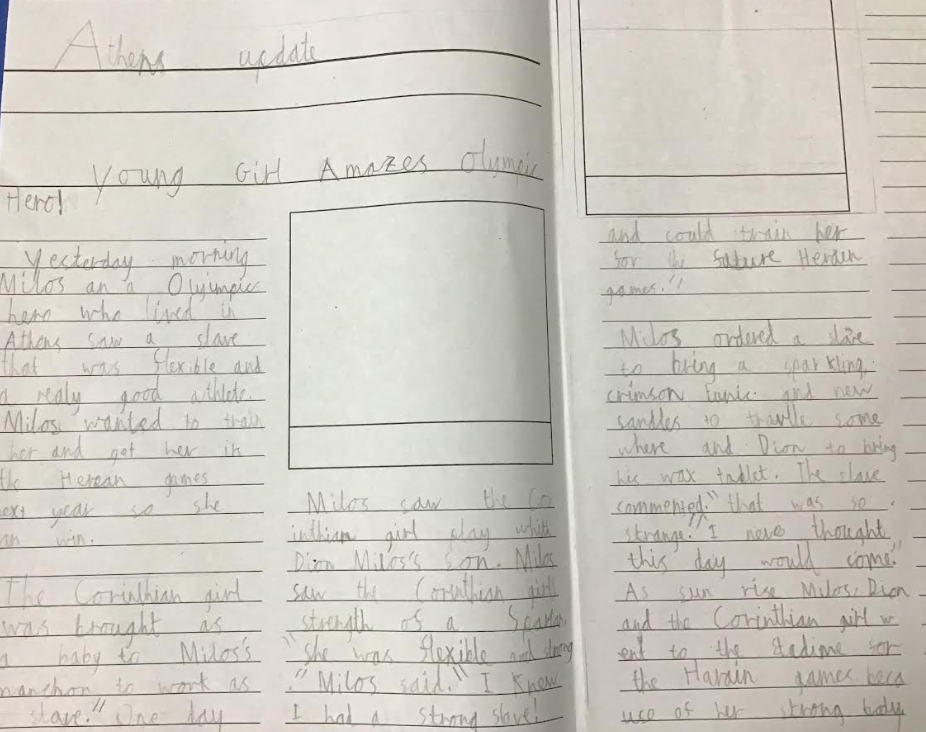 Athens update
Young Girl Amazes Olympic
Hero!
Yesterday morning
Milos an a Olyimpic
hero who lived in
Athens saw a slave
that was flexible and
a realy good athlete.
Milos wanted to train
her and get her in
the Herean games
next year so she
can win.
The Corinthian girl
was brought as
a baby to Milos's
manchon to work as
slave." One day
Milos saw the Co
inthian girl play whith
Dion Milos's son. Milos
saw the Corinthian girls
strength of a Spartan
"she was flexible and strong
." Milos said." I Knew
I had a strong slave!
and could train her
for the future Herean
games."
Milos ordered a slave
to bring a sparkling
crimson tunic and new
sandles to travlle some
where and Dion to bring
his wax tablet. The slave
commented." that was so
strange." I never thought
this day would come."
As sun rise Milos, Dion
and the Corinthian girl w
ent to the stadime for
the Harain games beca
use of her strong body